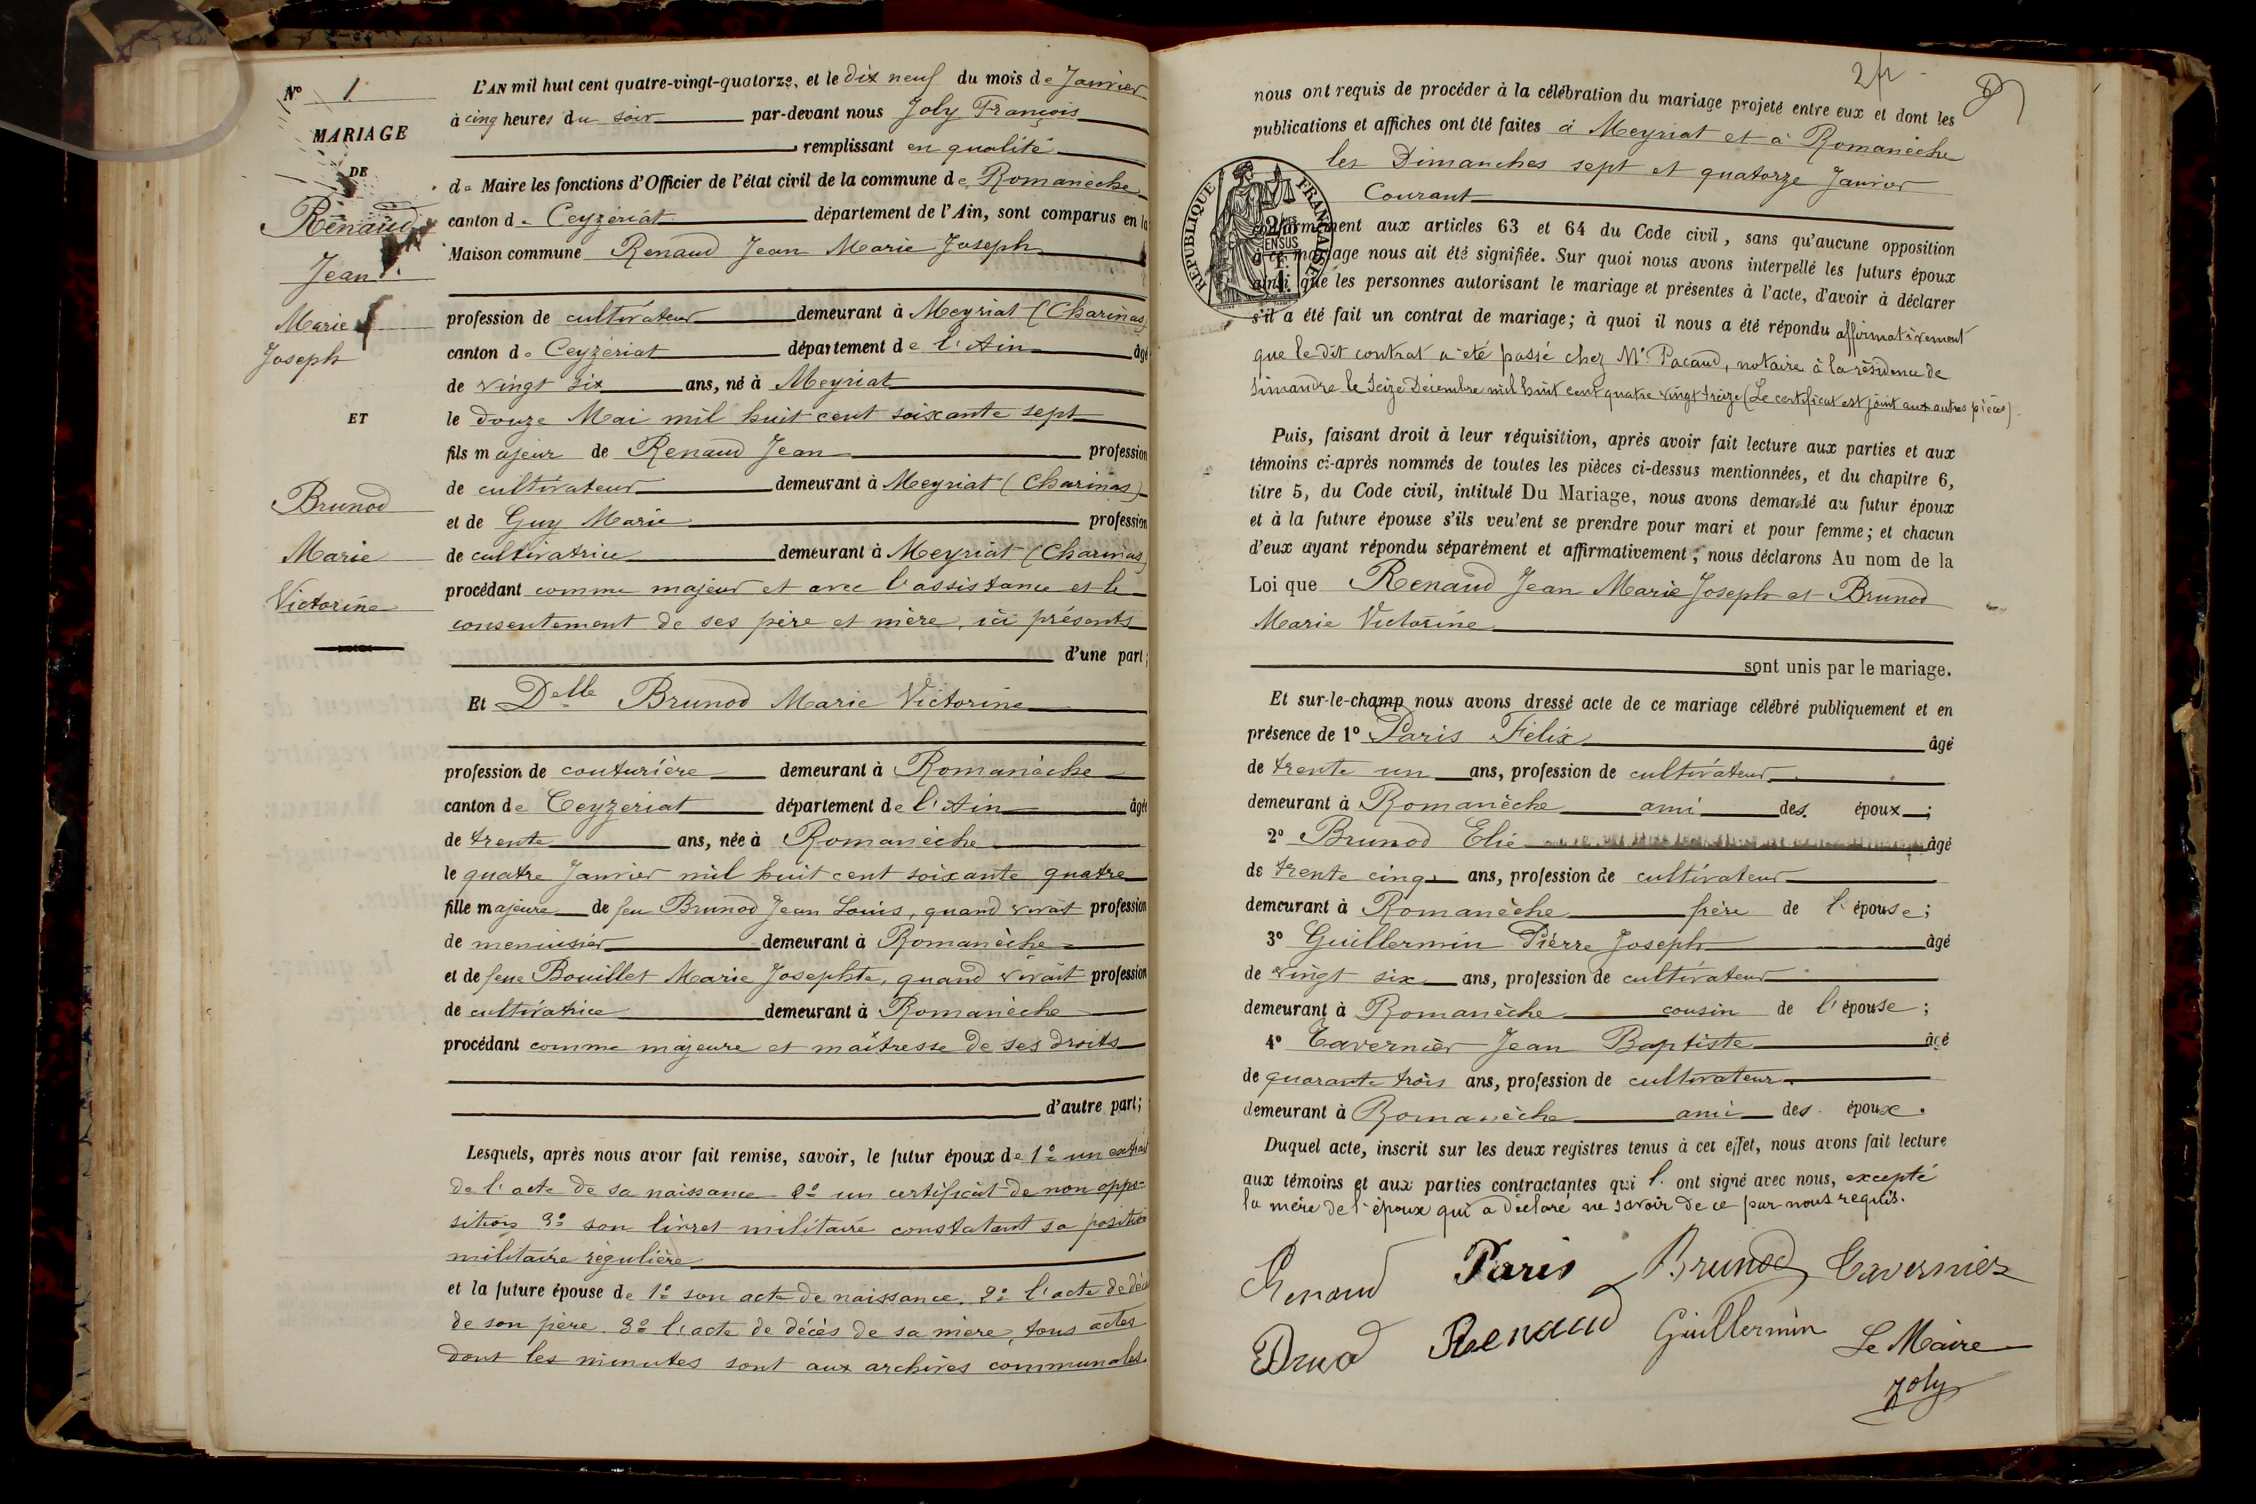 N° 1
MARIAGE
DE
Renaud
Jean
Marie
Joseph
ET
Brunod
Marie
Victorine
L'AN mil huit cent quatre-vingt-quatorze, et le dix neuf du mois de Janvier
à cinq heures du soir par-devant nous Joly François
remplissant en qualité
de Maire les fonctions d'Officier de l'état civil de la commune de Romanèche
canton de Ceyzériat département de l'Ain, sont comparus en la
Maison commune Renaud Jean Marie Joseph
profession de cultivateur demeurant à Meyriat (Charinas)
canton de Ceyzériat département de l'Ain âgé
de vingt six ans, né à Meyriat
le douze Mai mil huit cent soixante sept
fils majeur de Renaud Jean profession
de cultivateur demeurant à Meyriat (Charinas)
et de Guy Marie profession
de cultivatrice demeurant à Meyriat (Charinas)
procédant comme majeur et avec l'assistance et le
consentement de ses père et mère, ici présents
d'une part;
Et Delle Brunod Marie Victorine
profession de couturière demeurant à Romanèche
canton de Ceyzeriat département de l'Ain âgée
de trente ans, née à Romanèche
le quatre Janvier mil huit cent soixante quatre
fille majeure de feu Brunod Jean Louis, quand vivait profession
de menuisier demeurant à Romanèche
et de feue Bouillet Marie Josephte, quand vivait profession
de cultivatrice demeurant à Romanèche
procédant comme majeure et maîtresse de ses droits
d'autre part;
Lesquels, après nous avoir fait remise, savoir, le futur époux de 1° un extrait
de l'acte de sa naissance 2° un certificat de non oppo-
sition 3° son livret militaire constatant sa position
militaire régulière
et la future épouse de 1° son acte de naissance, 2° l'acte de décès
de son père 3° l'acte de décès de sa mère, tous actes
dont les minutes sont aux archives communales
nous ont requis de procéder à la célébration du mariage projeté entre eux et dont les
publications et affiches ont été faites à Meyriat et à Romanèche
les Dimanches sept et quatorze Janvier
Courant
RÉPUBLIQUE FRANÇAISE
conformément aux articles 63 et 64 du Code civil, sans qu'aucune opposition
à ce mariage nous ait été signifiée. Sur quoi nous avons interpellé les futurs époux
ainsi que les personnes autorisant le mariage et présentes à l'acte, d'avoir à déclarer
s'il a été fait un contrat de mariage; à quoi il nous a été répondu affirmativement
que le dit contrat a été passé chez Me Pacaud, notaire à la résidence de
Simandre le Seize Décembre mil huit cent quatre vingt treize (Le certificat est joint aux autres pièces)
Puis, faisant droit à leur réquisition, après avoir fait lecture aux parties et aux
témoins ci-après nommés de toutes les pièces ci-dessus mentionnées, et du chapitre 6,
titre 5, du Code civil, intitulé Du Mariage, nous avons demandé au futur époux
et à la future épouse s'ils veulent se prendre pour mari et pour femme; et chacun
d'eux ayant répondu séparément et affirmativement, nous déclarons Au nom de la
Loi que Renaud Jean Marie Joseph et Brunod
Marie Victorine
sont unis par le mariage.
Et sur-le-champ nous avons dressé acte de ce mariage célébré publiquement et en
présence de 1° Paris Félix âgé
de trente un ans, profession de cultivateur
demeurant à Romanèche ami des époux;
2° Brunod Elie âgé
de trente cinq ans, profession de cultivateur
demeurant à Romanèche frère de l'épouse;
3° Guillermin Pierre Joseph âgé
de vingt six ans, profession de cultivateur
demeurant à Romanèche cousin de l'épouse;
4° Tavernier Jean Baptiste âgé
de quarante trois ans, profession de cultivateur
demeurant à Romanèche ami des époux.
Duquel acte, inscrit sur les deux registres tenus à cet effet, nous avons fait lecture
aux témoins et aux parties contractantes qui l. ont signé avec nous, excepté
la mère de l'époux qui a déclaré ne savoir de ce par nous requis.
Renaud Paris Brunod Tavernier
Renaud Guillermin Le Maire
Joly